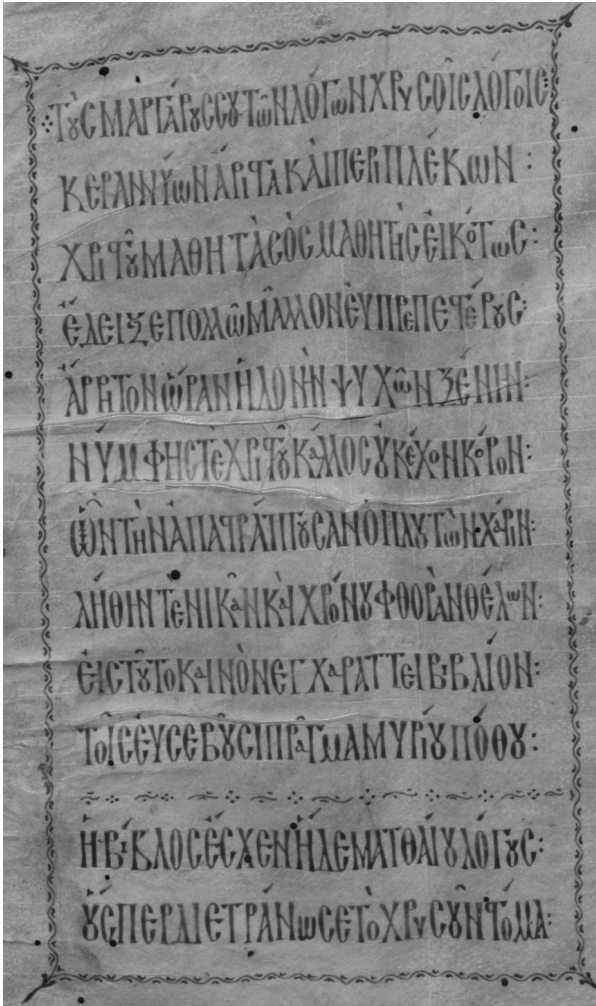 Τοὺς μαργάρους σου τῶν λόγων χρυσοῖς λόγοις
κεραννύων ἄριστα καὶ περιπλέκων :
χριστοῦ μαθητὰς ὃς μαθητὴς εἰκότως:
ἔδειξε πολλῶ μᾶλλον εὐπρεπεστέρους:
ἄρρητον ὥραν ἡδονὴν ψυχῶν ξένην:
νύμφης τε χριστοῦ κάλλος οὐκ ἔχον κόρον:
ὧν τὴν ἀπαστράπτουσαν ὁ πλουτῶν χάριν:
λήθην τε νικᾶν καὶ χρόνου φθορὰν θέλων:
εἰς τοῦτο καινὸν ἐγχαράττει βιβλίον:
τοῖς εὐσεβοῦσι πρᾶγμα μυρίου πόθου:
ἡ βίβλος ἔσχεν ἥδε ματθαίου λόγους:
οὕσπερ διετράνωσε τὸ χρυσοῦν στόμα: